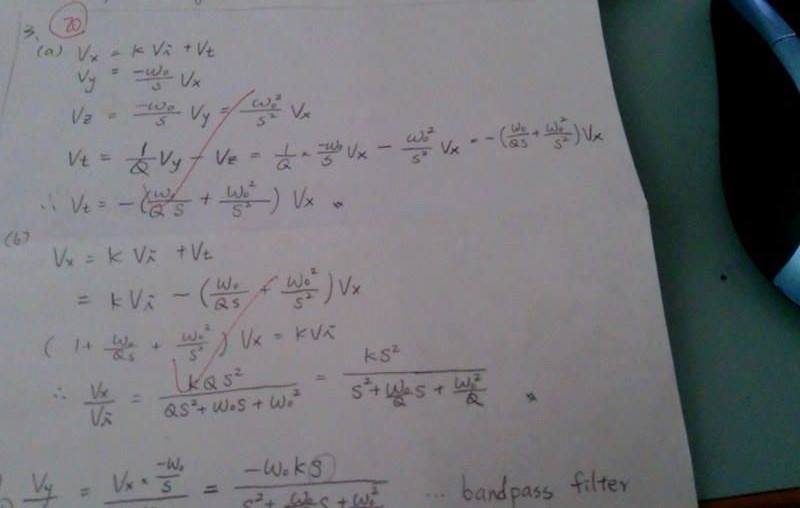 3. 20
(a) Vx = k Vi + Vt
Vy = -ω₀/s Vx
Vz = -ω₀/s Vy = ω₀²/s² Vx
Vt = 1/Q Vy - Vz = 1/Q × -ω₀/s Vx - ω₀²/s² Vx = -(ω₀/Qs + ω₀²/s²) Vx
∴ Vt = -(ω₀/Qs + ω₀²/s²) Vx
(b)
Vx = k Vi + Vt
= k Vi - (ω₀/Qs + ω₀²/s²) Vx
(1 + ω₀/Qs + ω₀²/s²) Vx = kVi
∴ Vx/Vi = kQs²/(Qs² + ω₀s + ω₀²) = ks²/(s² + ω₀/Q s + ω₀²/Q)
Vy/ = Vx × -ω₀/s / = -ω₀ks/(s² + ω₀/ s + ω₀²/ ... bandpass filter